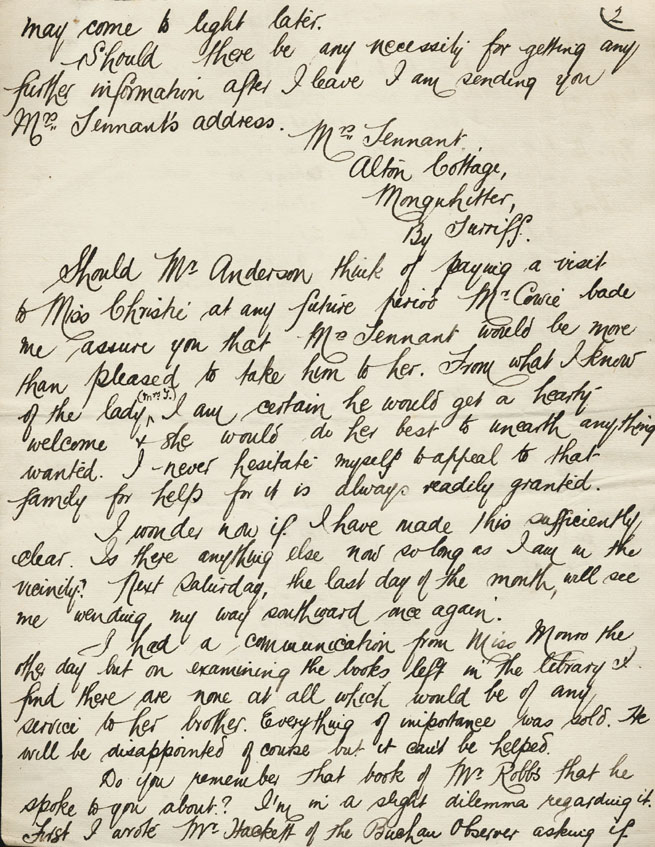 2
may come to light later.
Should there be any necessity for getting any
further information after I leave I am sending you
Mrs Tennant's address.
Mrs Tennant,
Alton Cottage,
Monquhitter,
By Turriff.
Should Mr Anderson think of paying a visit
to Miss Christie at any future period Mr Cowie bade
me assure you that Mrs Tennant would be more
than pleased to take him to her. From what I know
of the lady (Mrs T.) I am certain he would get a hearty
welcome & she would do her best to unearth anything
wanted. I never hesitate myself to appeal to that
family for help for it is always readily granted.
I wonder now if I have made this sufficiently
clear. Is there anything else now so long as I am in the
vicinity? Next Saturday, the last day of the month, will see
me wending my way southward once again.
I had a communication from Miss Monro the
other day but on examining the books left in the library I
find there are none at all which would be of any
service to her brother. Everything of importance was sold. He
will be disappointed of course but it can't be helped.
Do you remember that book of Mr Robb's that he
spoke to you about? I'm in a slight dilemma regarding it.
First I wrote Mr Hackett of the Buchan Observer asking if